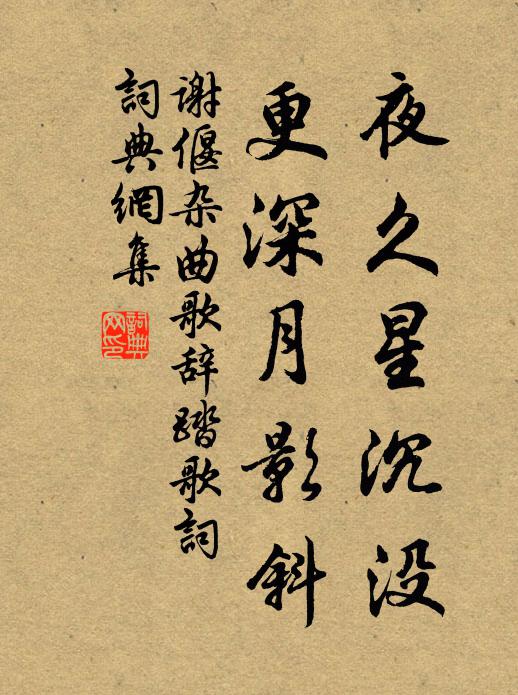 夜久星沉没
更深月影斜
谢偃杂曲歌辞踏歌词
詞典網集
詞典
网印